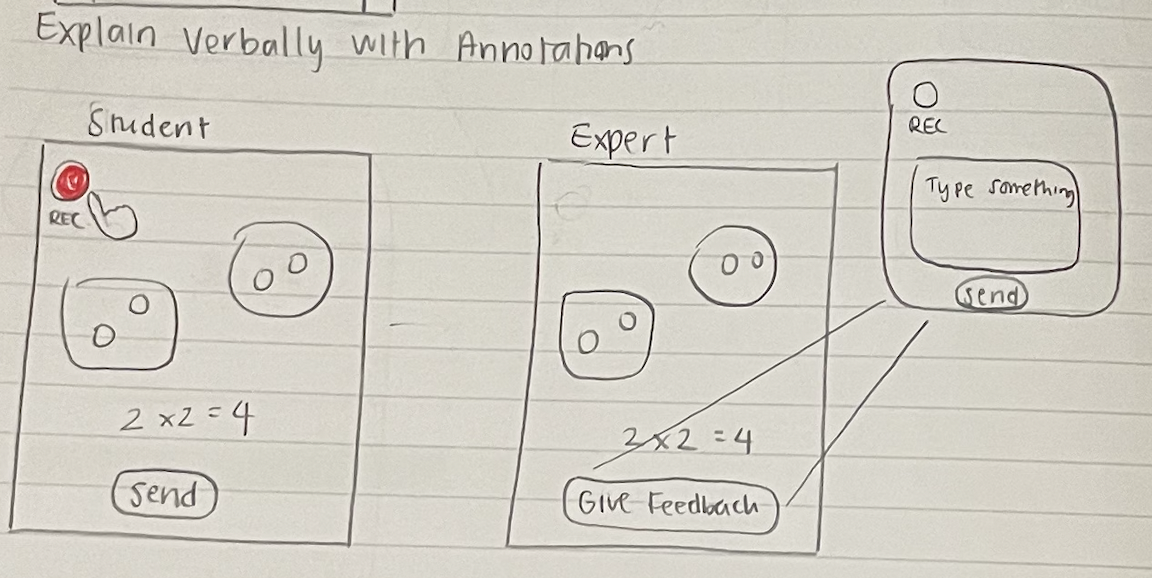 Explain Verbally with Annotations
Student
REC
2 x 2 = 4
Send
Expert
2 x 2 = 4
Give Feedback
REC
Type something
send